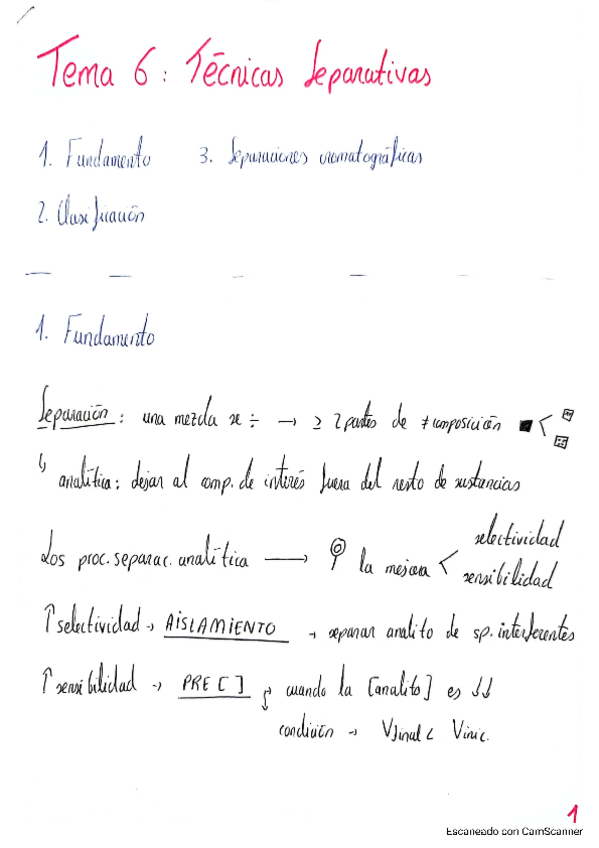 Tema 6: Técnicas Separativas
1. Fundamento 3. Separaciones cromatográficas
2. Clasificación
1. Fundamento
Separación: una mezcla se ÷ → ≥ 2 partes de ≠ composición
↳ analítica: dejar al comp. de interés fuera del resto de sustancias
Los proc. separac. analítica → la mejora < selectividad
sensibilidad
↑ selectividad → AISLAMIENTO → separar analito de sp. interferentes
↑ sensibilidad → PRE [ ] → cuando la [analito] es ↓↓
condición → Vfinal < Vinic.
1
Escaneado con CamScanner